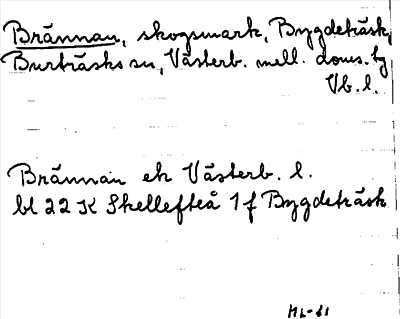 Brännan, skogsmark, Bygdeträsk,
Burträsks sn, Västerb. mell. doms. tg
Vb. l.
Brännan ek Västerb. l.
bl 22 K Skellefteå 1 f Bygdeträsk